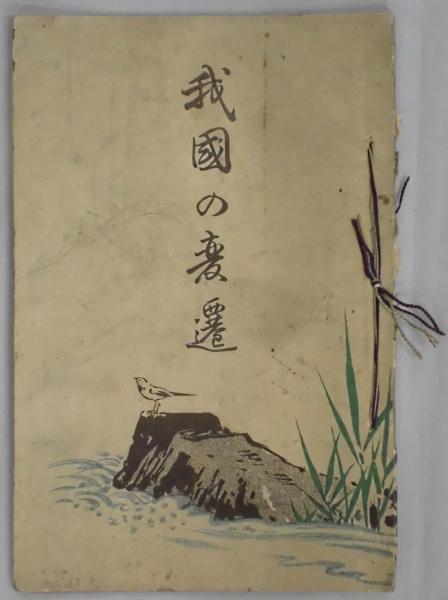 我國の変遷